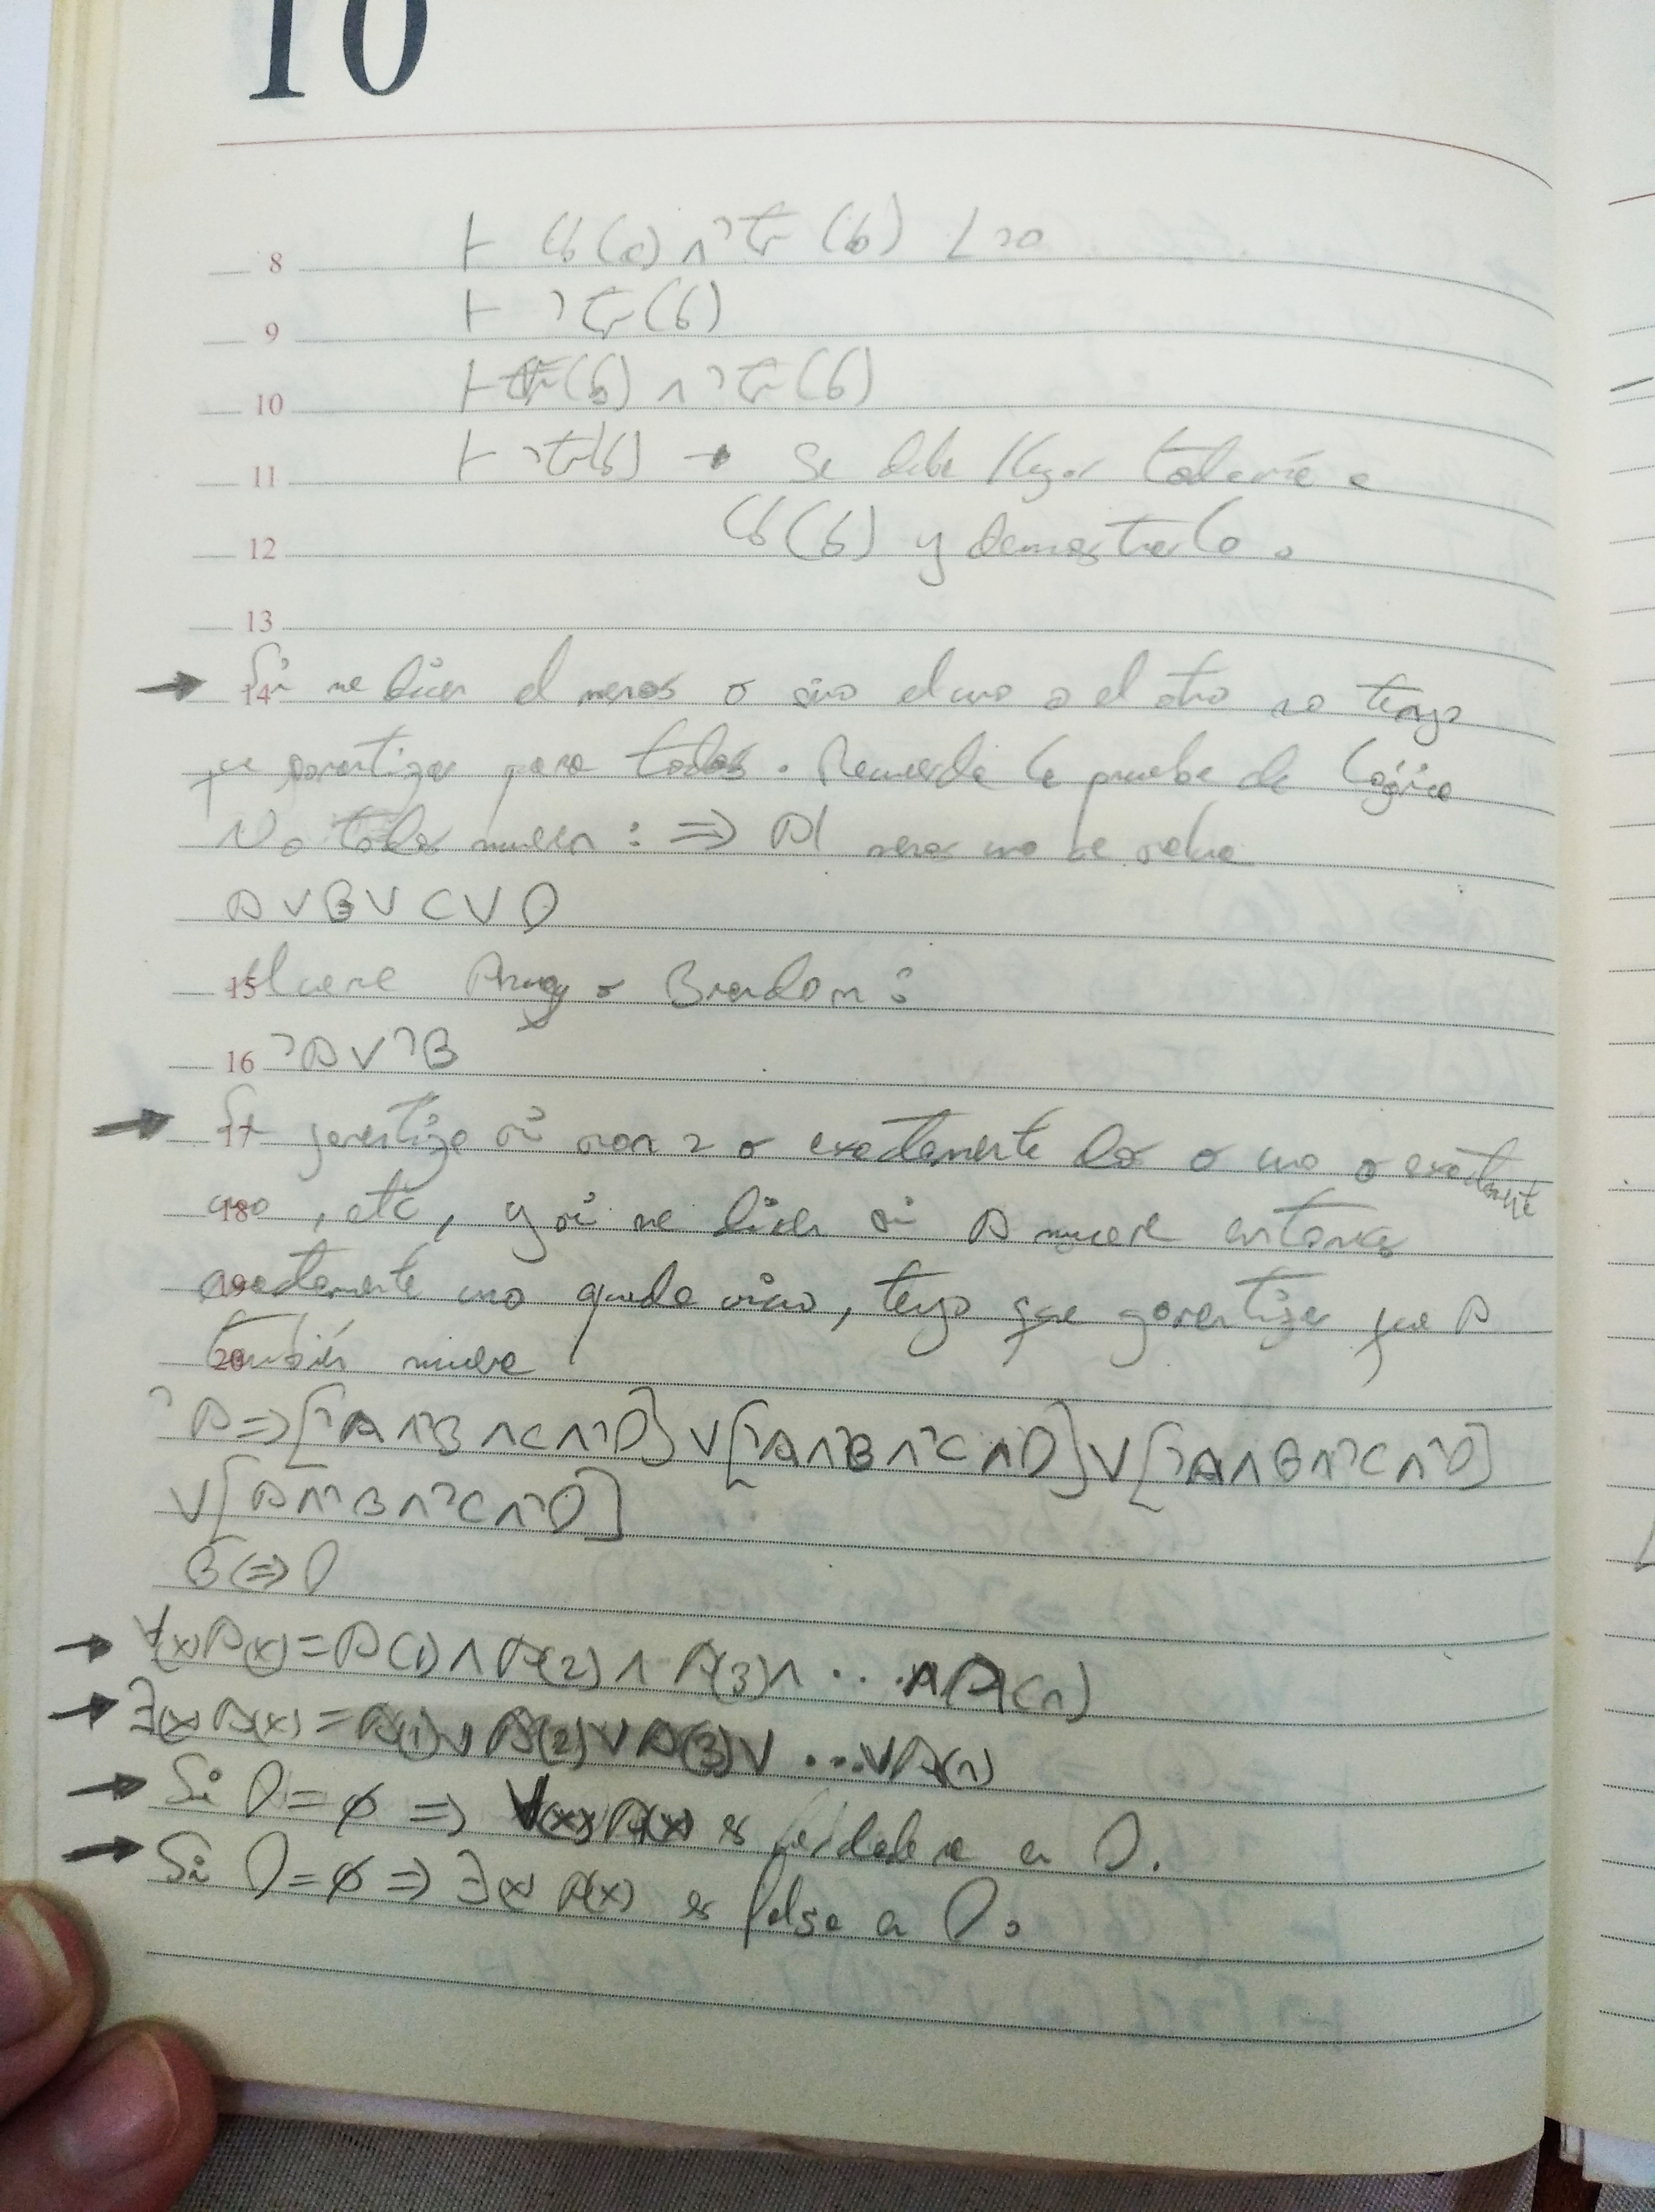 10
8 ⊢ Cb(a) ∧ ¬Tr(b)
9 ⊢ ¬Tr(b)
10 ⊢ Tr(b) ∧ ¬Tr(b)
11 ⊢ ¬Tr(b) → Se debe llegar todavía a
12 Cb(b) y demostrarlo.
13
→ 14 Si me dicen al menos o sino el uno o el otro no tengo
que garantizar para todos. Recuerda la prueba de lógica
No todos mueren : ⇒ Al menos uno se salva
A ∨ B ∨ C ∨ D
15 Muere Angy o Brandon:
16 ¬A ∨ ¬B
→ 17 Se garantiza si son 2 o exactamente dos o uno o exactamente
18 uno, etc, y si me dicen si A muere entonces
19 exactamente uno queda vivo, tengo que garantizar que A
20 también muere
¬A ⇒ [¬A ∧ ¬B ∧ C ∧ ¬D] ∨ [¬A ∧ ¬B ∧ ¬C ∧ D] ∨ [¬A ∧ B ∧ ¬C ∧ ¬D]
∨ [A ∧ ¬B ∧ ¬C ∧ ¬D]
B ⇔ D
→ ∀(x) A(x) = A(1) ∧ A(2) ∧ A(3) ∧ ... ∧ A(n)
→ ∃(x) A(x) = A(1) ∨ A(2) ∨ A(3) ∨ ... ∨ A(n)
→ Si D = ∅ ⇒ ∀(x) A(x) es verdadera en D.
→ Si D = ∅ ⇒ ∃(x) A(x) es falsa en D.